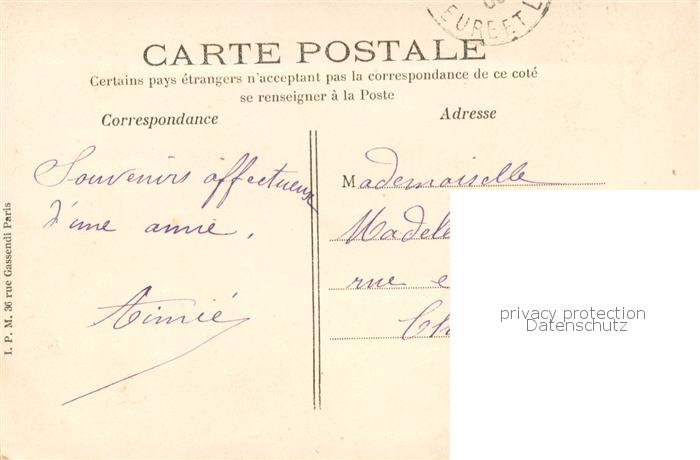 EURE ET L
CARTE POSTALE
Certains pays étrangers n'acceptant pas la correspondance de ce coté
se renseigner à la Poste
Correspondance
Adresse
Souvenirs affectueux
d'une amie.
Aimée
Mademoiselle
Madele
rue e
Ch
I. P. M. 36 rue Gassendi Paris
privacy protection
Datenschutz